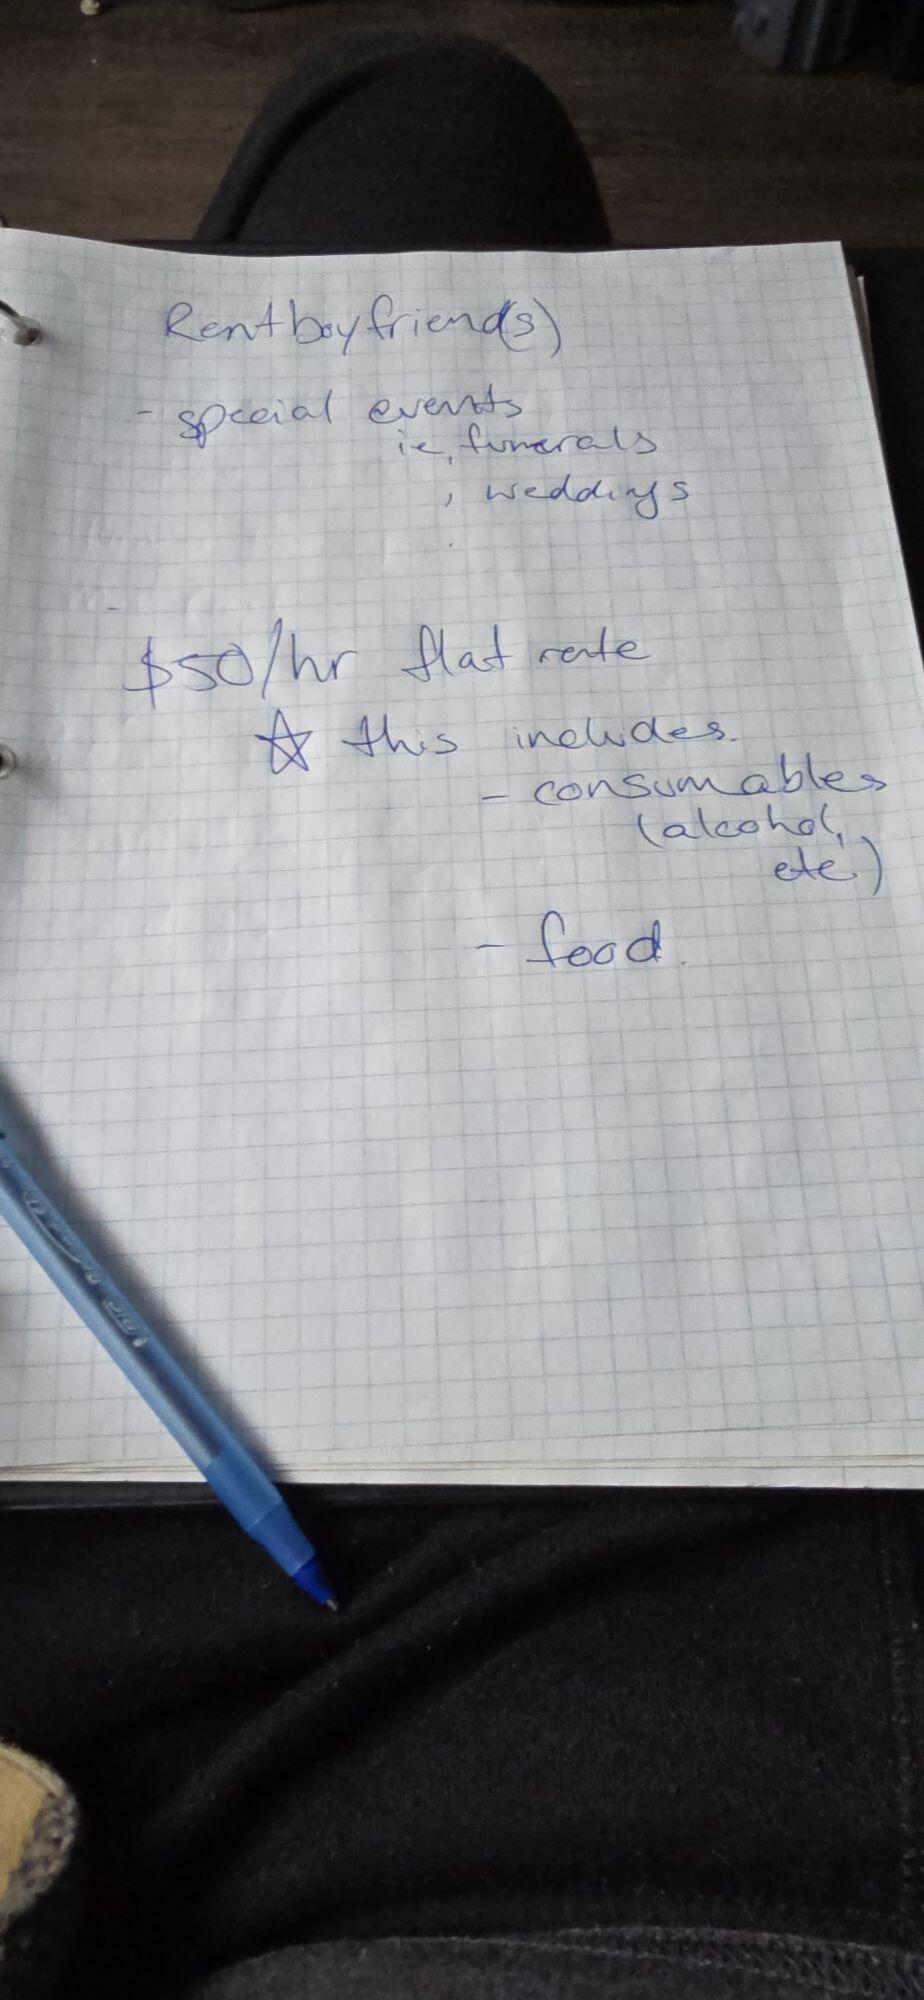 Rentboyfriend(s)
- special events
ie, funerals
, weddings
-
$50/hr flat rate
☆ this includes.
- consumables
(alcohol,
etc)
- food.